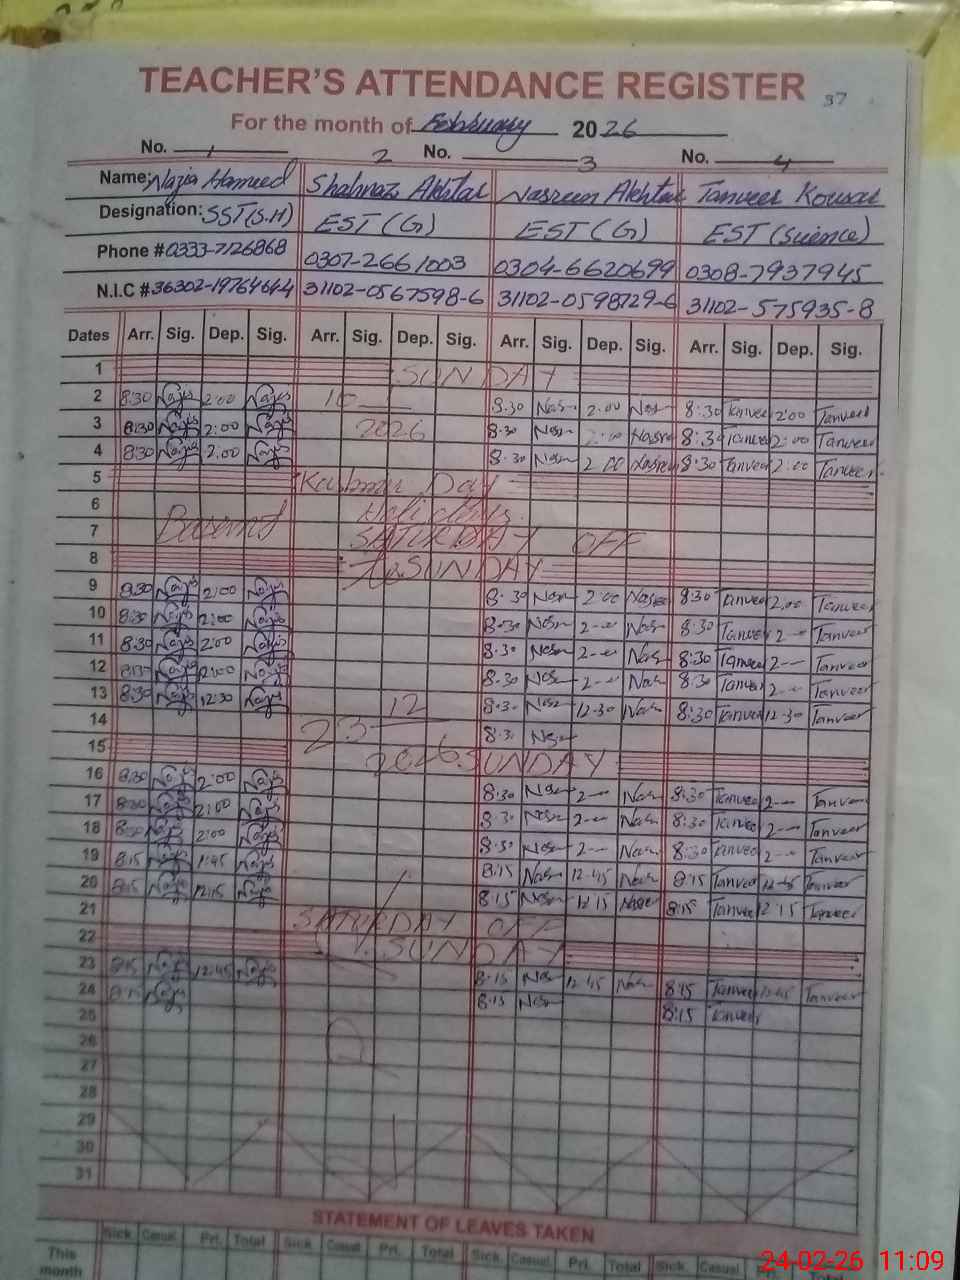 TEACHER'S ATTENDANCE REGISTER
37
For the month of February 2026
No. 1 2 No. 3 No. 4
Name: Nazia Hameed Shahnaz Akhtar Nasreen Akhtar Tanveer Kousar
Designation: SST(S.H) EST(G) EST(G) EST(Science)
Phone #0333-7126868 0307-2661003 0304-6620699 0308-7937945
N.I.C #36302-1976464-4 31102-0567598-6 31102-0598729-6 31102-575935-8
Dates Arr. Sig. Dep. Sig. Arr. Sig. Dep. Sig. Arr. Sig. Dep. Sig. Arr. Sig. Dep. Sig.
1 SUNDAY
2 8:30 2:00 10 8.30 Nasr 2.00 Nasr 8:30 Tanveer 2:00 Tanveer
3 8:30 2:00 2026 8.30 Nasr 2:00 8:30 Tanveer 2:00 Tanveer
4 8:30 2:00 8.30 Nasr 2 00 8:30 Tanveer 2:00 Tanveer
5 Kashmir Day
6 Holidays
7 SATURDAY OFF
8 SUNDAY
9 8:30 2:00 8.30 Nasr 2.00 8:30 Tanveer 2:00 Tanveer
10 8:30 2:00 8.30 Nasr 2-- Nasr 8:30 Tanveer 2-- Tanveer
11 8:30 2:00 8.30 Nasr 2-- Nasr 8:30 Tanveer 2-- Tanveer
12 8:30 2:00 8.30 Nasr 2-- Nasr 8:30 Tanveer 2-- Tanveer
13 8:30 12:30 12 8.30 Nasr 12-30 Nasr 8:30 Tanveer 12-30 Tanveer
14 23 8.30 Nasr
15 2026 SUNDAY
16 8:30 2:00 8:30 Nasr 2-- Nasr 8:30 Tanveer 2-- Tanveer
17 8:30 2:00 8.30 Nasr 2-- Nasr 8:30 Tanveer 2-- Tanveer
18 8:30 2:00 8.30 Nasr 2-- Nasr 8:30 Tanveer 2-- Tanveer
19 8:15 1:45 8:15 Nasr 12-45 Nasr 8:15 Tanveer 12-45 Tanveer
20 8:15 12:15 8.15 Nasr 12 15 8:15 Tanveer 12:15 Tanveer
21 SATURDAY OFF
22 SUNDAY
23 8:15 12:45 8.15 Nasr 12 45 Nasr 8:15 Tanveer 12:45 Tanveer
24 8:15 8.15 Nasr 8:15 Tanveer
25
26
27
28
29
30
31
STATEMENT OF LEAVES TAKEN
Sick Casual Pri. Total Sick Casual Pri. Total Sick Casual Pri. Total Sick Casual
This
month
24-02-26 11:09